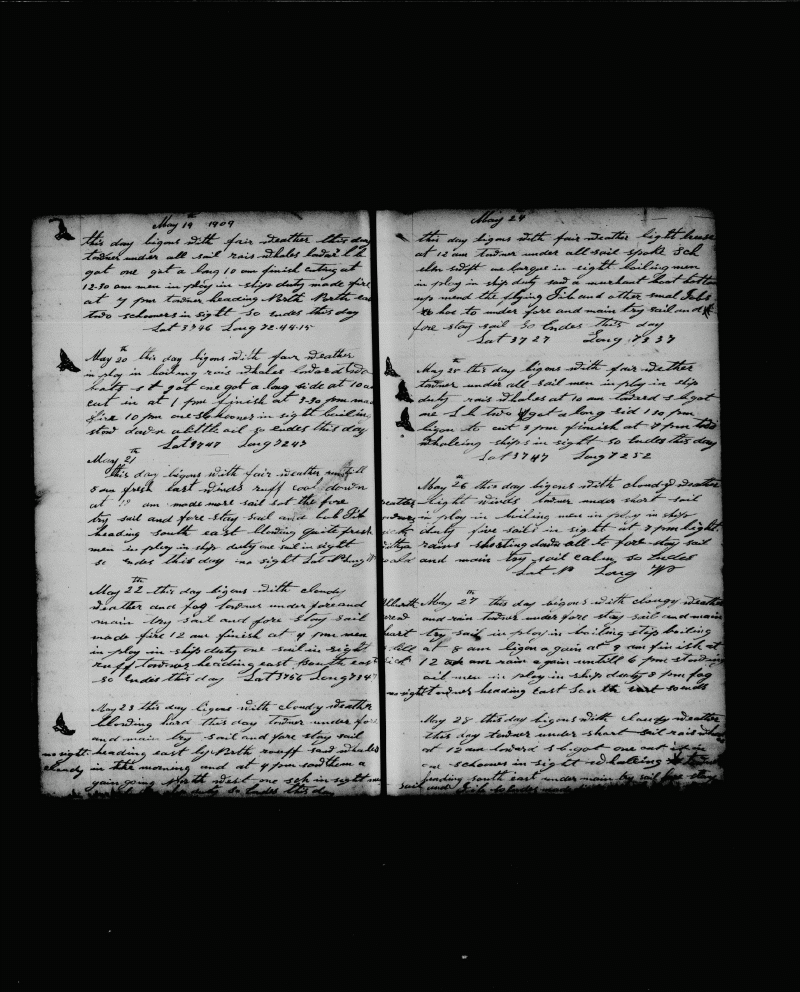 May 19th 1909
this day bigons with fair weather this day
towner under all sail rais whales lowar L B
got one got a long 10 am finish cuting at
12-30 am men in ploy in ship duty made fire
at 7 pm towner heading North North east
two schoners in sight so endes this day
Lat 3746 Long 72-44-15
May 20 this day bigons with fair weather
in ploy in boiling rais whales lowar two
bots s + got one got a long side at 10 am
cut in at 1 pm finish at 3-30 pm made
fire 10 pm one schooner in sight boiling
stow down a little oil so endes this day
Lat 3747 Long 7243
May 21th
this day bigons with fair weather untill
8 am fresh east winds ruff cool down
at am made more sail sot the fore
try sail and fore stay sail and Jib
heading south east blowing quite fresh
men in ploy in ship duty one sail in sight
so endes this day no sight Lat N Long W
May 22th this day bigons with cloudy
weather and fog towner under fore and
main try sail and fore stay sail
made fire 12 am finish at 4 pm men
in ploy in ship duty one sail in sight
ruff towner heading east South east
so endes this day Lat 3756 Long 7247
May 23 this day bigons with cloudy weather
blowing hard this day towner under fore
and main try sail and fore stay sail
no sight heading east by North ruff saw whales
cloudy in the morning and at 4 pm saw them a
gain going North west one sch in sight men
duty so endes this day
May 24th
this day bigons with fair weather light breese
at 12 am towner under all sail spoke Sch
ellen swift one barque in sight boiling men
in ploy in ship duty saw a merchant boat bottom
up mend the flying Jib and other small Jobs
hove to under fore and main try sail and
fore stay sail so endes this day
Lat 3727 Long 7337
May 25th this day bigons with fair weather
towner under all sail men in ploy in ship
duty rais whales at 10 am lowerd s b got
one L b two got a long sid 1 30 pm
bigon to cut 3 pm finish at 7 pm two
whaleing ships in sight so endes this day
Lat 3747 Long 7252
May 26th this day bigons with cloudy weather
light winds towner under short sail
in ploy in boiling men in ploy in ship
duty five sails in sight at 7 pm light
rains shorting down all to fore stay sail
and main try sail calm so endes
Lat N Long W
May 27th this day bigons with clougy weather
and rain towner under fore stay sail and main
try sail in ploy in boiling stop boiling
at 8 am bigon a gain at 9 am finish at
12 am rain a gain untell 6 pm standing
all men in ploy in ship duty 8 pm fog
no sight towner heading east South east winds
May 28 this day bigons with clougy weather
this day towner under short sail rais whales
at 12 am lowerd s b got one cut it in
one schoners in sight whaleing
heading south east under main try sail fore stay
sail and Jib so endes